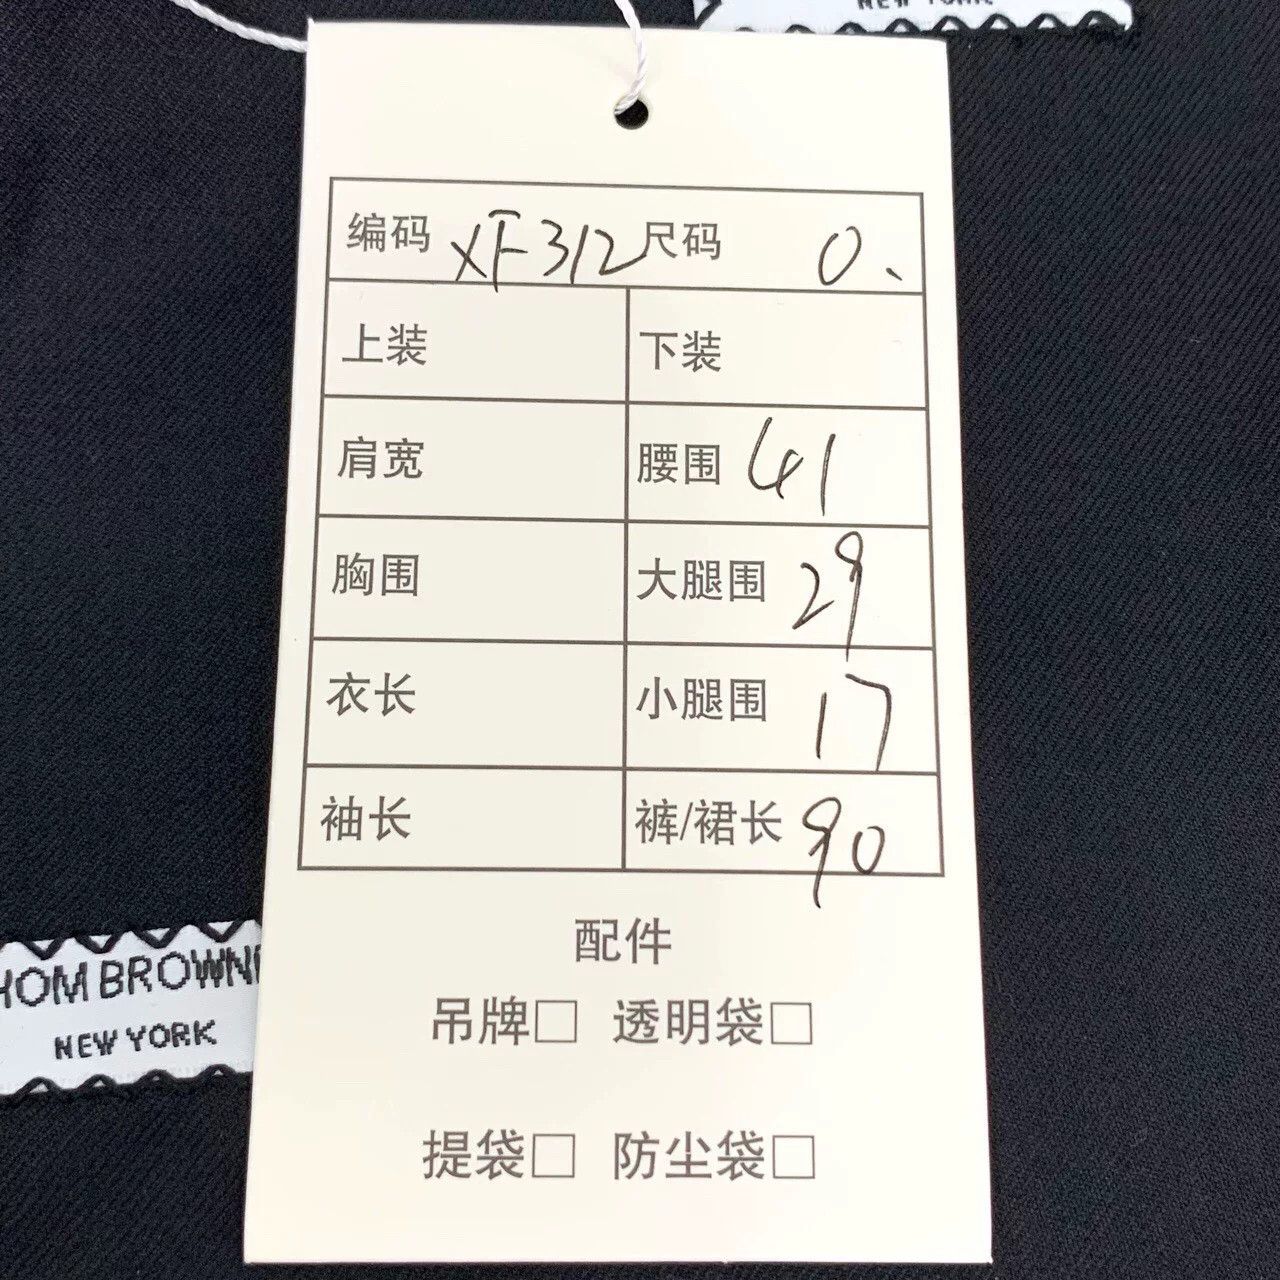 NEW YORK
编码 XF312 尺码 0.
上装 下装
肩宽 腰围 41
胸围 大腿围 29
衣长 小腿围 17
袖长 裤/裙长 90
配件
吊牌□ 透明袋□
提袋□ 防尘袋□
HOM BROWN
NEW YORK